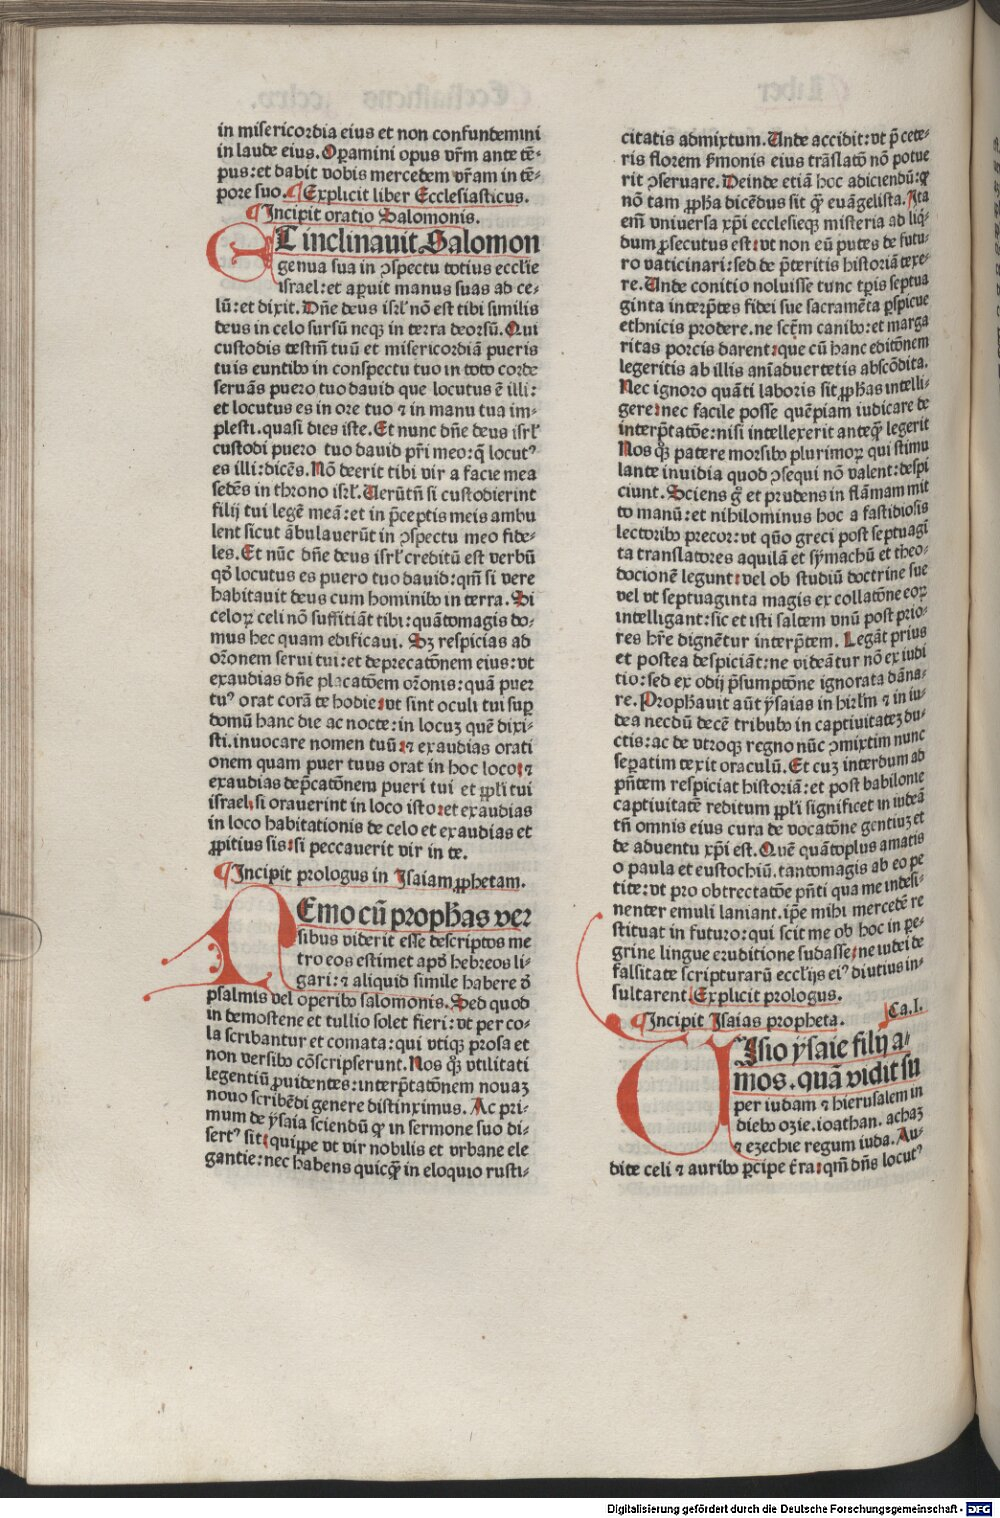 in misericordia eius et non confundemini
in laude eius. Operamini opus vr̃m ante tẽ-
pus: et dabit vobis mercedem vr̃am in tẽ-
pore suo. ¶ Explicit liber Ecclesiasticus.
¶ Incipit oratio Salomonis.
ET inclinauit Salomon
genua sua in ꝯspectu totius eccl'ie
israel: et aperuit manus suas ad ce-
lũ: et dixit. Dñe deus isrł nõ est tibi similis
deus in celo sursũ neqꝫ in terra deorsũ. Qui
custodis testm̃ tuũ et misericordiã pueris
tuis euntibꝰ in conspectu tuo in toto corde
seruãs puero tuo dauid que locutus ẽ illi:
et locutus es in ore tuo ⁊ in manu tua im-
plesti. quasi dies iste. Et nunc dñe deus isrł
custodi puero tuo dauid pr̃i meo: q̃ locutꝰ
es illi: dicẽs. Nõ deerit tibi vir a facie mea
sedẽs in throno isrł. Uerũtñ si custodierint
filij tui legẽ meã: et in p̃ceptis meis ambu
lent sicut ãbulauerũt in ꝯspectu meo fide-
les. Et nũc dñe deus isrł creditũ est verbũ
qđ locutus es puero tuo dauid: qm̃ si vere
habitauit deus cum hominibꝰ in terra. Si
celoꝝ celi nõ suffitiãt tibi: quãtomagis do-
mus hec quam edificaui. Sꝫ respicias ad
orõnem serui tui: et deprecatõnem eius: vt
exaudias dñe placatõem orõnis: quã puer
tuꝰ orat corã te hodie: vt sint oculi tui suꝑ
domũ hanc die ac nocte: in locuꝫ quẽ dixi-
sti. inuocare nomen tuũ: ⁊ exaudias orati
onem quam puer tuus orat in hoc loco: ⁊
exaudias dep̃catõnem pueri tui et ꝓpłi tui
israel, si orauerint in loco isto: et exaudias
in loco habitationis de celo et exaudias et
ꝓpitius sis: si peccauerit vir in te.
¶ Incipit prologus in Isaiam ꝓphetam.
NEmo cũ prophas ver
sibus viderit esse descriptos me
tro eos estimet apđ hebreos li-
gari: ⁊ aliquid simile habere đ
psalmis vel operibꝰ salomonis. Sed quod
in demostene et tullio solet fieri: vt per co-
la scribantur et comata: qui vtiqꝫ prosa et
non versibꝰ cõscripserunt. Nos q̊ꝫ vtilitati
legentiũ ꝓuidentes: interp̃tatõnem nouaꝫ
nouo scribẽdi genere distinximus. Ac pri-
mum de ysaia sciendũ ꝙ in sermone suo di-
sertꝰ sit: quippe vt vir nobilis et vrbane ele
gantie: nec habens quicq̃ꝫ in eloquio rusti-
citatis admixtum. Unde accidit: vt p̃ cete-
ris florem s̃monis eius trãslatõ nõ potue
rit ꝯseruare. Deinde etiã hoc adiciendũ: ꝙ
nõ tam ꝓpha dicẽdus sit q̃ꝫ euãgelista. Ita
em̃ vniuersa xp̃i ecclesieqꝫ misteria ad liq̃-
dum ꝓsecutus est: vt non eũ putes de futu-
ro vaticinari: sed de p̃teritis historiã texe-
re. Unde conitio noluisse tunc tp̃is septua
ginta interp̃tes fidei sue sacramẽta ꝑspicue
ethnicis prodere. ne sctm̃ canibꝰ: et marga
ritas porcis darent: que cũ hanc editõnem
legeritis ab illis aniãduertetis abscõdita.
Nec ignoro quãti laboris sit ꝓphas intelli-
gere: nec facile posse quẽpiam iudicare de
interp̃tatõe: nisi intellexerit anteq̃ꝫ legerit
Nos q̊ꝫ patere morsibꝰ plurimoꝝ qui stimu
lante inuidia quod ꝯsequi nõ valent: despi
ciunt. Sciens g̊ et prudens in flãmam mit
to manũ: et nihilominus hoc a fastidiosis
lectoribꝰ precor: vt qũo greci post septuagĩ
ta translatores aquilã et symachũ et theo-
docionẽ legunt: vel ob studiũ doctrine sue
vel vt septuaginta magis ex collatõne eoꝝ
intelligant: sic et isti saltem vnũ post prio-
res hr̃e dignẽtur interp̃tem. Legãt prius
et postea despiciãt: ne videãtur nõ ex iudi
tio: sed ex odij p̃sumptõne ignorata dãna-
re. Prophauit aũt ysaias in hirłm ⁊ in iu-
dea necdũ decẽ tribubꝰ in captiuitateꝫ du-
ctis: ac de vtroqꝫ regno nũc ꝯmixtim nunc
seꝑatim texit oraculũ. Et cuꝫ interdum ad
pñtem respiciat historiã: et post babilonie
captiuitatẽ reditum ꝓpłi significet in iudeã
tñ omnis eius cura de vocatõne gentiuꝫ et
de aduentu xp̃i est. Quẽ quãtoplus amatis
o paula et eustochiũ. tantomagis ab eo pe
tite: vt pro obtrectatõe pñti qua me indesi-
nenter emuli laniant. ip̃e mihi mercetẽ re
stituat in futuro: qui scit me ob hoc in ꝑe-
grine lingue eruditione sudasse: ne iudei de
falsitate scripturarũ eccl'ijs eiꝰ diutius in-
sultarent. Explicit prologus.
¶ Incipit Isaias propheta. Ca. I.
UIsio ysaie filij a-
mos. quã vidit su
per iudam ⁊ hierusalem in
diebꝰ ozie. ioathan. achaꝫ
⁊ ezechie regum iuda. Au-
dite celi ⁊ auribꝰ ꝑcipe t̃ra: qm̃ dñs locutꝰ
Digitalisierung gefördert durch die Deutsche Forschungsgemeinschaft - DFG